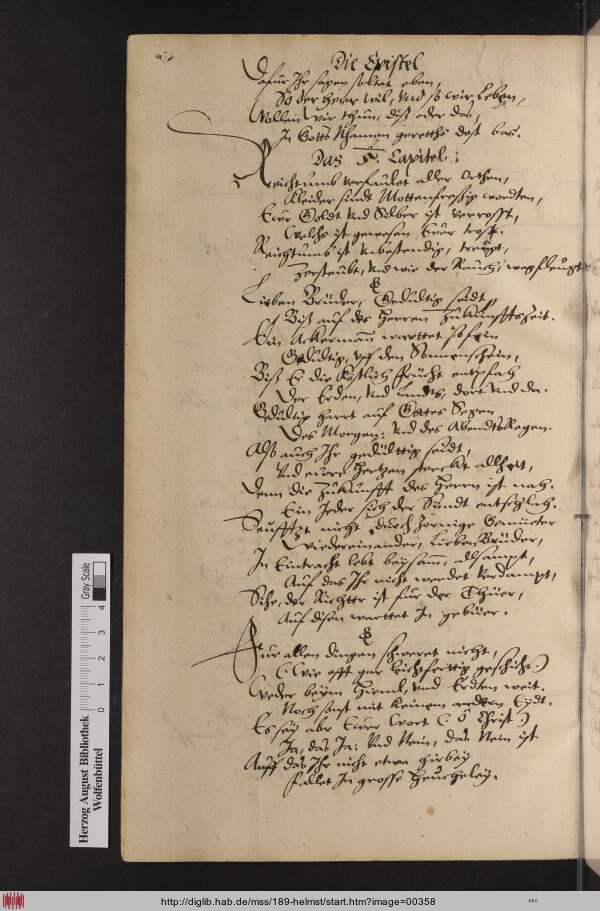 Die Epistel
Dafür Ihr sagen soltet eben,
So der Herr wil, und so wir Leben,
Wollen wir thun, diß oder das,
In Gotts Nhamen gerethe dest bas.
Das 5. Capitel.
Reichtumb verfaulet aller Orthen,
Kleider sindt Mottenfressig wordten,
Ewr Goldt und Silber ist verrosst,
Welchs ist gewesen Ewer trost.
Reichtumb ist unbestendig, treugt,
Zersteubt, und wie der Rauch, wegfleugt
Lieben Brüder, Gedultig seidt
Biß auf des Herren Zukunfftszeit.
Ein Ackermann warttet
Gedultig, uff den Sonnenschein,
Biß Er die Köstlich Frücht entpfah
Der Erden, und Landts, dort und da.
Gedultig harrt auf Gottes Segen
Des Morgen, und des Abendts Regen.
Alß auch Ihr gedülttig seidt,
Und eure Hertzen stercket allzeit,
Denn die Zukunfft des Herrn ist nah.
Ein Jeder sich der Sündt
Seuffzt nicht durch Zornige Gemüeter
Wiedereinander, Lieben Brüder,
In Eintracht lebt beysamm, allsampt,
Auf das Ihr nicht werdet verdampt,
Sihe, der Richtter ist für der Thüer,
Auf disen warttet In gebüer.
Für allen dingen schweret nicht,
(Wie offt gar leichtferttig geschicht.)
Weder beym Himel, und Erdten weit.
Noch sonst mit keinem andern Eydt.
Es sey abr Ewer Wort (ô Christ)
Ja, das Ja: Und Nein, das Nein ist
Auff das Ihr nicht etwa hirbey
Fallet In grosse Heucheley.
Herzog August Bibliothek
Wolfenbüttel
0 1 2 3 4
Gray Scale
http://diglib.hab.de/mss/189-helmst/start.htm?image=00358